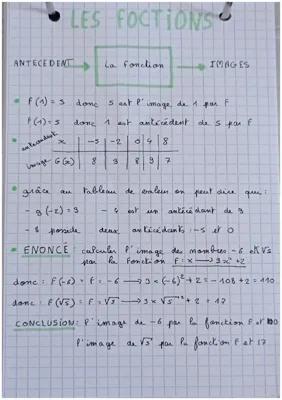 LES FOCTIONS
ANTECEDENT → La fonction → IMAGES
• F(1) = 5 donc 5 est l'image de 1 par F
F(1) = 5 donc 1 est antécédent de 5 par F
antecedent x | -5 | -2 | 0 | 4 | 8
image G(x) | 8 | 3 | 8 | 9 | 7
• grâce au tableau de valeur on peut dire que :
- g(-2) = 3 - 4 est un antécédant de 9
- 8 possède deux antécédants : -5 et 0
• ENONCÉ : calculer l'image des nombres -6 et √5
par la fonction F : x → 3x² + 2
donc : F(-6) = F = -6 → 3 × (-6)² + 2 = -108 + 2 = 110
donc : F(√5) = F = √5 → 3 × √5² + 2 = 17
CONCLUSION : l'image de -6 par la fonction F et 110
l'image de √5 par la fonction F et 17